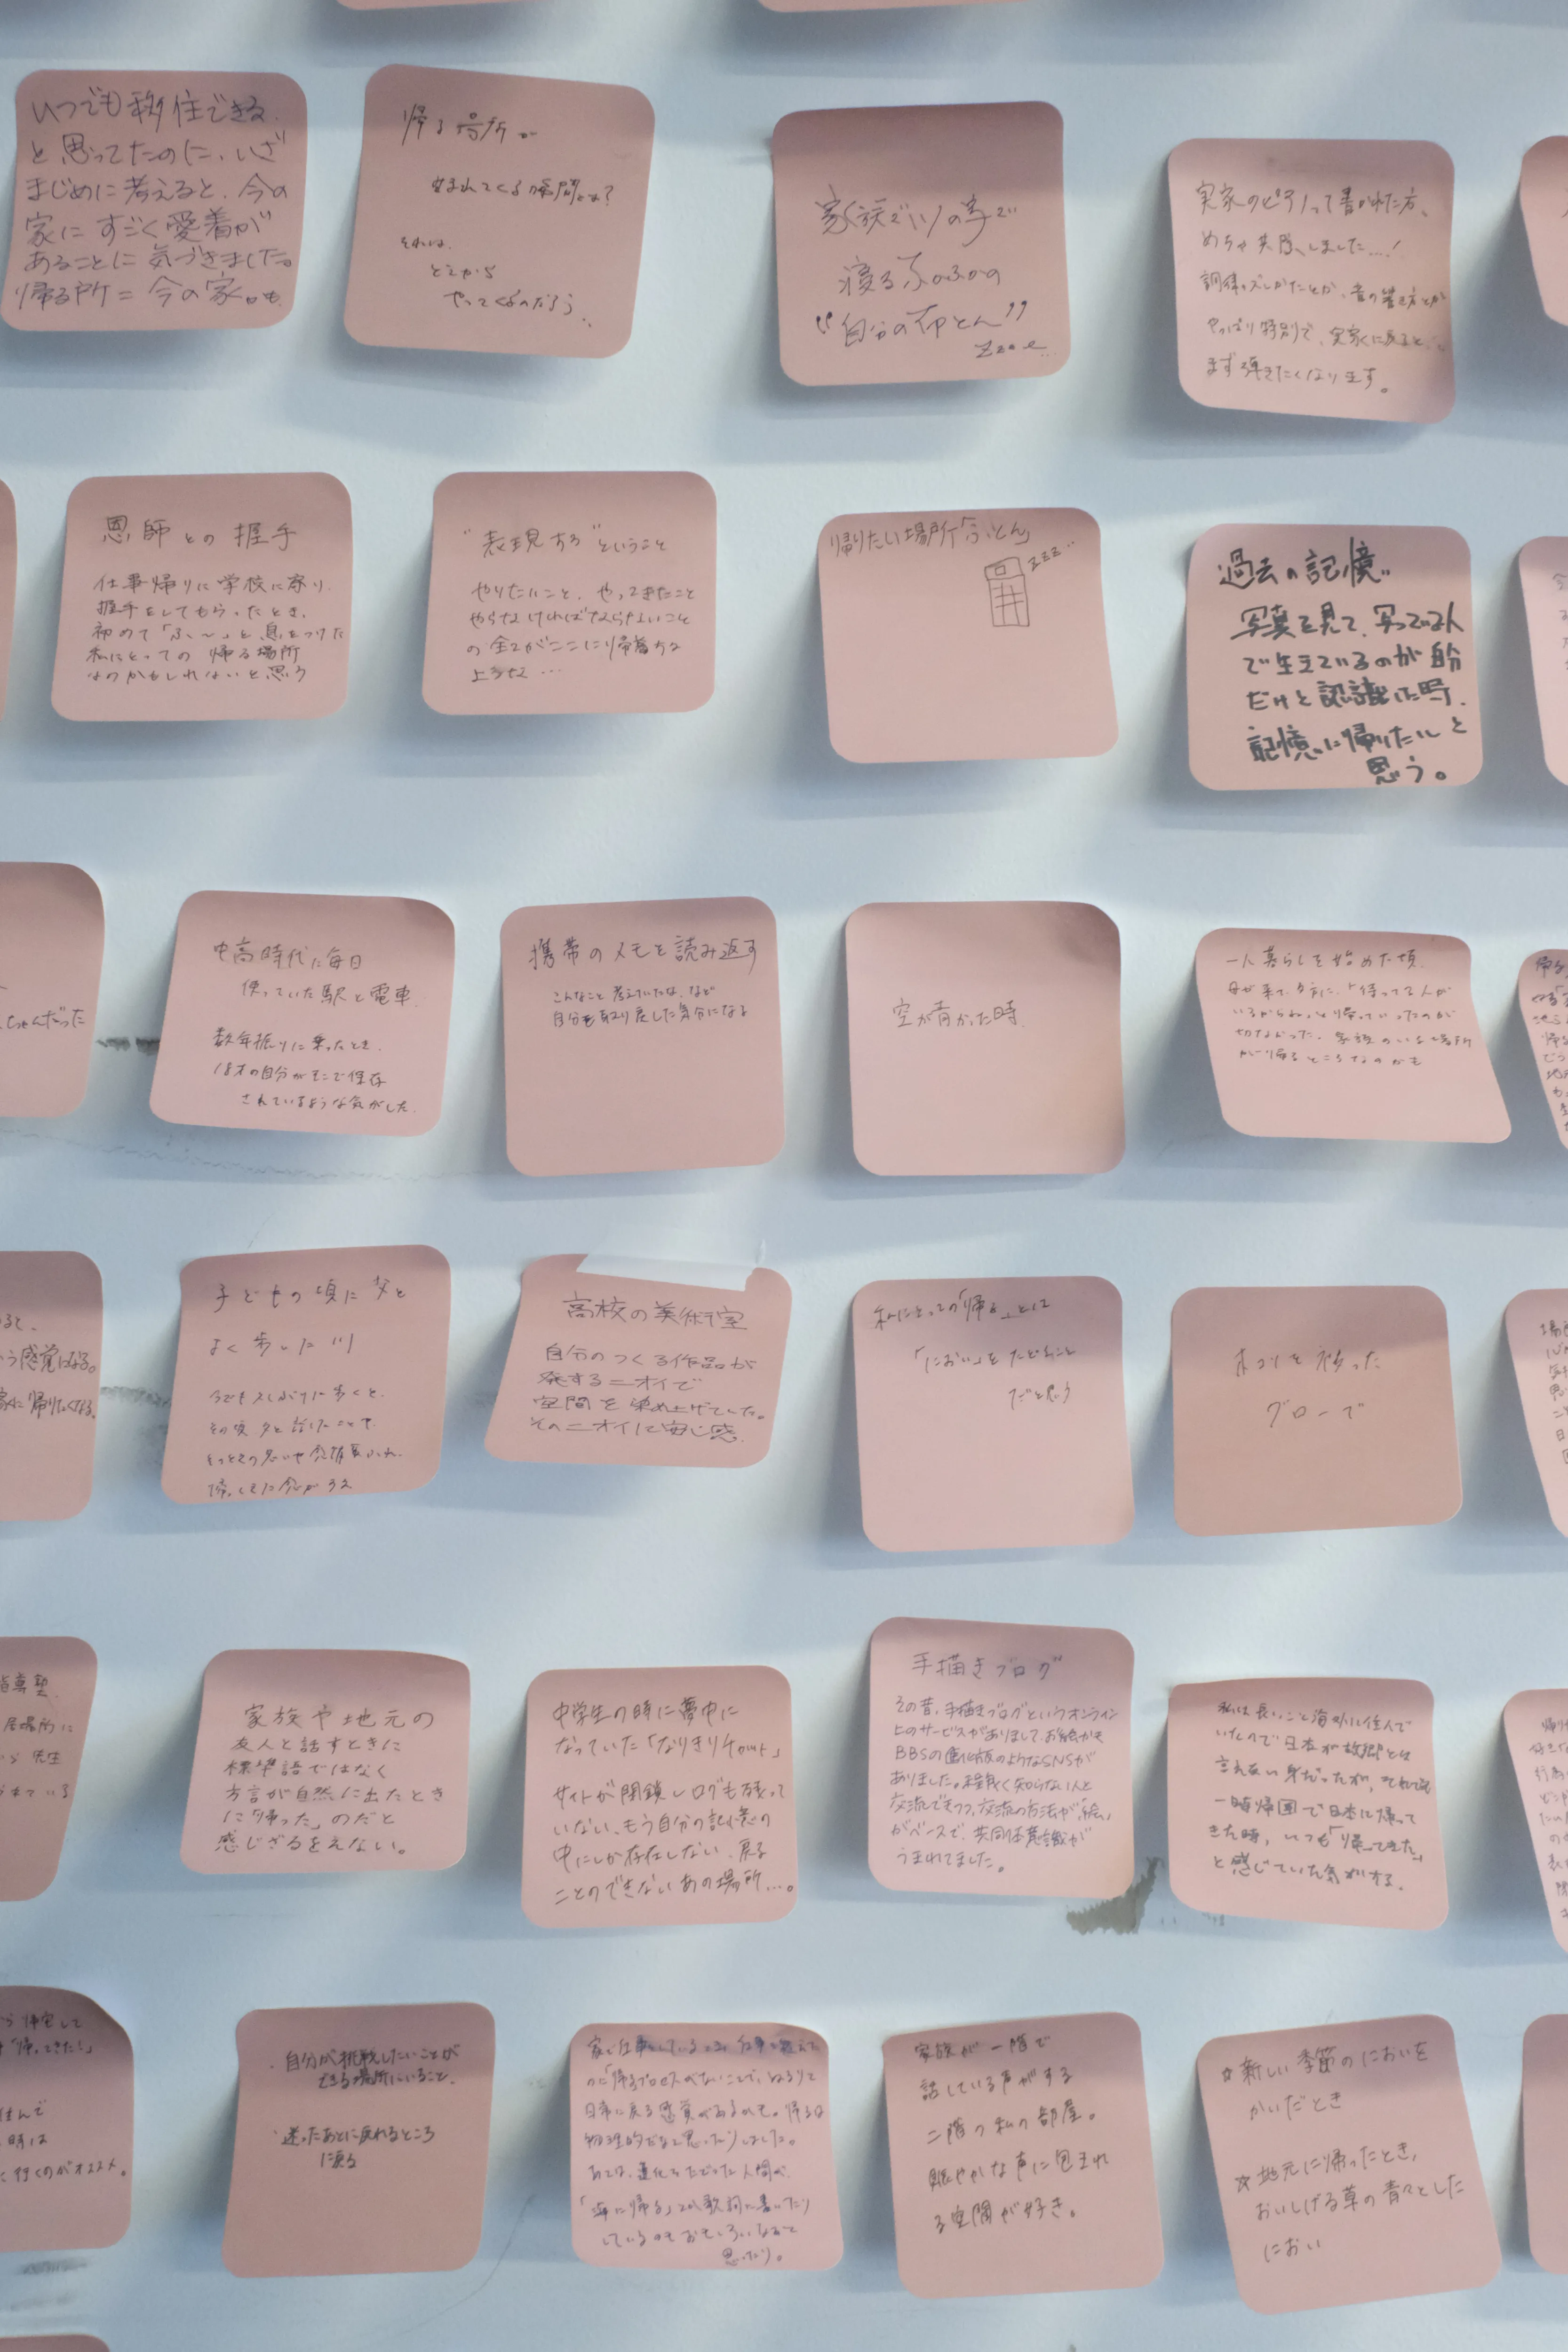 いつでも移住できる
と思ってたのに、いざ
まじめに考えると、今の
家にすごく愛着が
あることに気づきました。
帰る所=今の家。
帰る場所が
生まれてくる瞬間とは?
それは、
どこから
やってくるのだろう..
家族で川の字で
寝るふかふかの
“自分の布とん”
実家のピアノって書かれた方、
めちゃ共感しました...!
調律のズレかたとか、音の響き方とか
やっぱり特別で、実家に戻ると、
まず弾きたくなります。
恩師との握手
仕事帰りに学校に寄り、
握手をしてもらったとき、
初めて「ふぅ〜」と息をつけた
私にとっての 帰る場所
なのかもしれないと思う
“表現する”ということ
やりたいこと、やってきたこと
やらなければならないこと
の全てがここに帰着する
帰りたい場所「ふとん」
zzz...
過去の記憶
写真を見て、写っている人
で生きているのが自分
だけと認識した時、
記憶に帰りたいと
思う。
ちゃんだった
中高時代に毎日
使っていた駅と電車
数年振りに乗ったとき、
18才の自分がそこで保存
されているような気がした。
携帯のメモを読み返す
こんなこと考えていたな、など
自分を取り戻した気分になる
空が青かった時
一人暮らしを始めた頃、
母が来て、夕方に、「待ってる人が
いるからね」と帰っていったのが
切なかった。家族のいる場所
が帰るところなのかも
う感覚になる。
家に帰りたくなる。
子どもの頃に父と
よく歩いた川
今でも久しぶりに歩くと、
その頃父と話したことや、
高校の美術室
自分のつくる作品が
発するニオイで
空間を染め上げていた。
そのニオイに安心感
私にとっての「帰る」とは
「におい」をたどること
だと思う
ホコリを被った
グローブ
家族や地元の
友人と話すときに
標準語ではなく
方言が自然に出たとき
に「帰った」のだと
感じざるをえない。
中学生の時に夢中に
なっていた「なりきりチャット」
サイトが閉鎖しログも残って
いない、もう自分の記憶の
中にしか存在しない、戻る
ことのできないあの場所...。
手描きブログ
その昔、手描きブログというオンライン
上のサービスがありまして、お絵かき
BBSの進化版のようなSNSが
ありました。程良く知らない人と
交流できつつ、交流の方法が「絵」
がベースで、共同体意識が
うまれてました。
私は長いこと海外に住んで
いたので日本が故郷とは
言えない身だったが、それでも
一時帰国で日本に帰って
きた時、いつも「帰ってきた」
と感じていた気がする。
・自分が挑戦したいことが
できる場所にいること。
・迷ったあとに戻れるところ
に戻る
家で仕事をしているので、仕事を終えた
のに「帰る」プロセスがないことで、
日常に戻る感覚があるので。帰るは
物理的だなと思ったりしました。
あとは、進化をたどった人間が、
「海に帰る」とか歌詞に書いたり
しているのもおもしろいなぁと
思ったり。
家族が一階で
話している声がする
二階の私の部屋。
賑やかな声に包まれ
る空間が好き。
☆新しい季節のにおいを
かいだとき
☆地元に帰ったとき、
おいしげる草の青々とした
におい